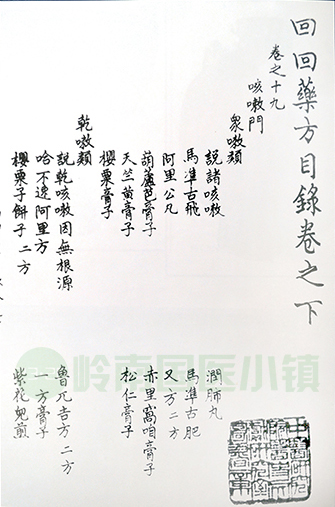 回回藥方目錄卷之下
卷之十九
咳嗽門
眾嗽類
說諸咳嗽
潤肺丸
馬準古飛
馬準古肥
阿里公凡
又方二方
葫蘆芭膏子
赤里窩咱膏子
天竺黃膏子
松仁膏子
櫻粟膏子
乾嗽類
說乾咳嗽因無根源
魯兀吉方二方
哈不速阿里方
一方膏子
櫻栗子餅子二方
紫花兒煎
岭南国医小镇